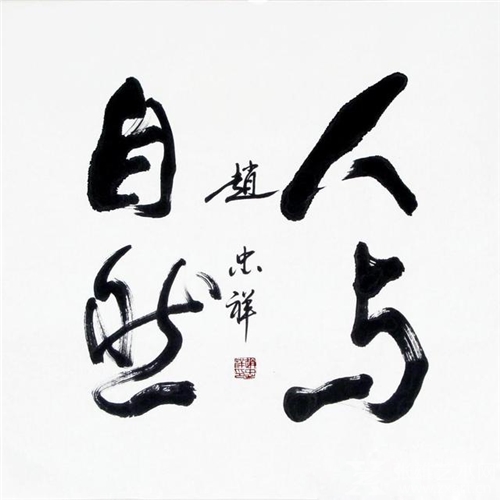 人与
自然
趙忠祥